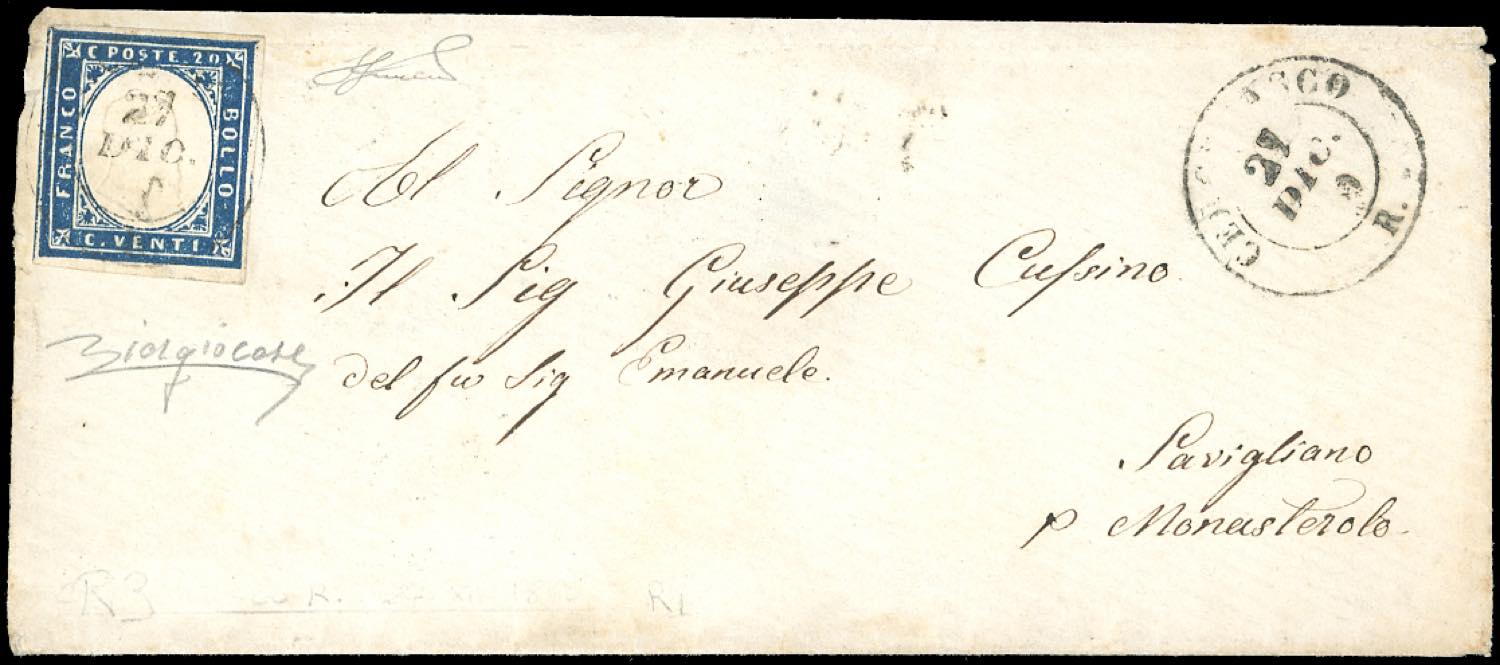 C POSTE. 20
FRANCO
BOLLO
C. VENTI
27
DIC.
Al Signor
Il Sig Giuseppe Cussino
del fu Sig Emanuele.
Savigliano
p Monasterolo.
27
DIC.
R.
R3
R1